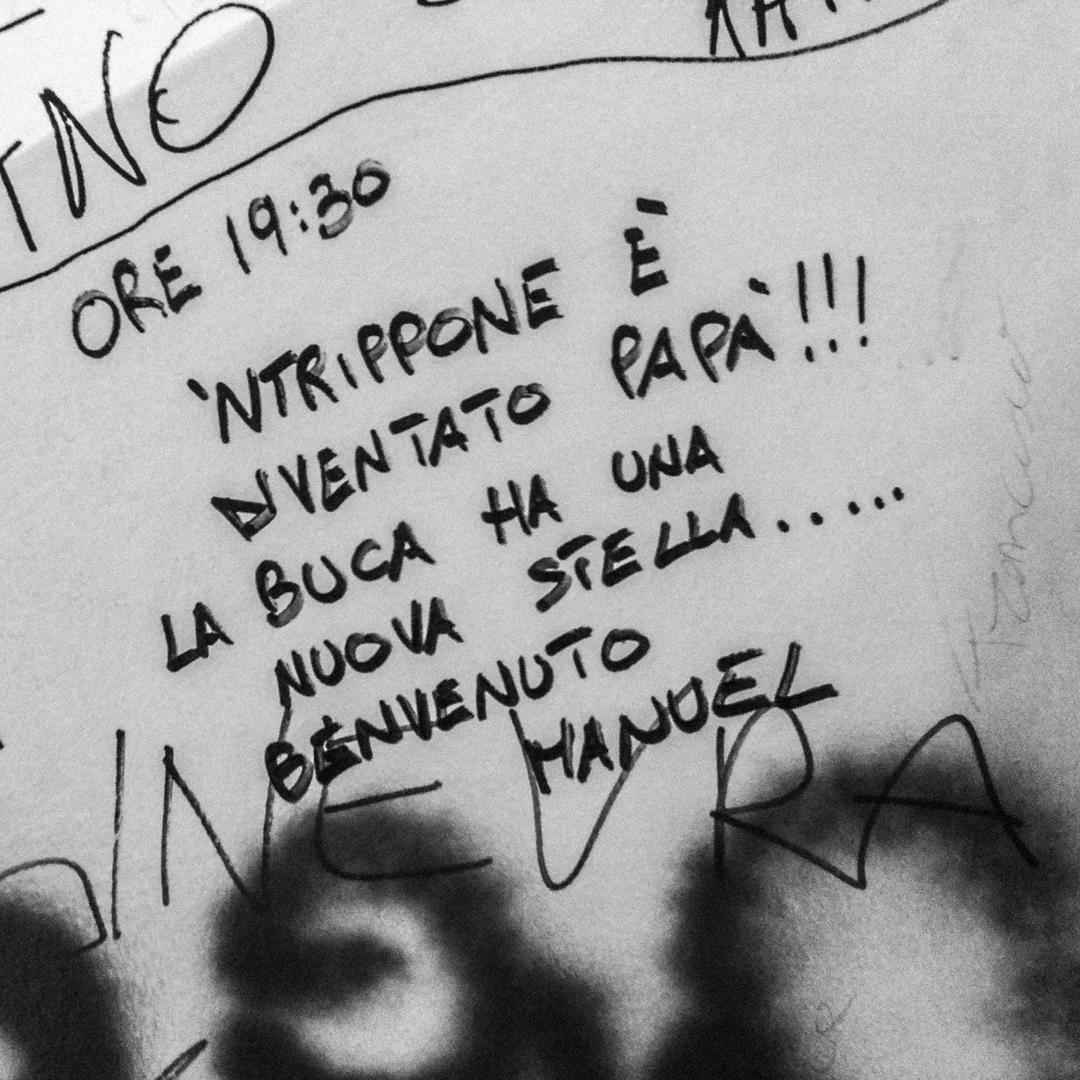 NO
ORE 19:30
'NTRIPPONE È
DIVENTATO PAPÀ!!!
LA BUCA HA UNA
NUOVA STELLA.....
BENVENUTO
MANUEL
GINEVRA